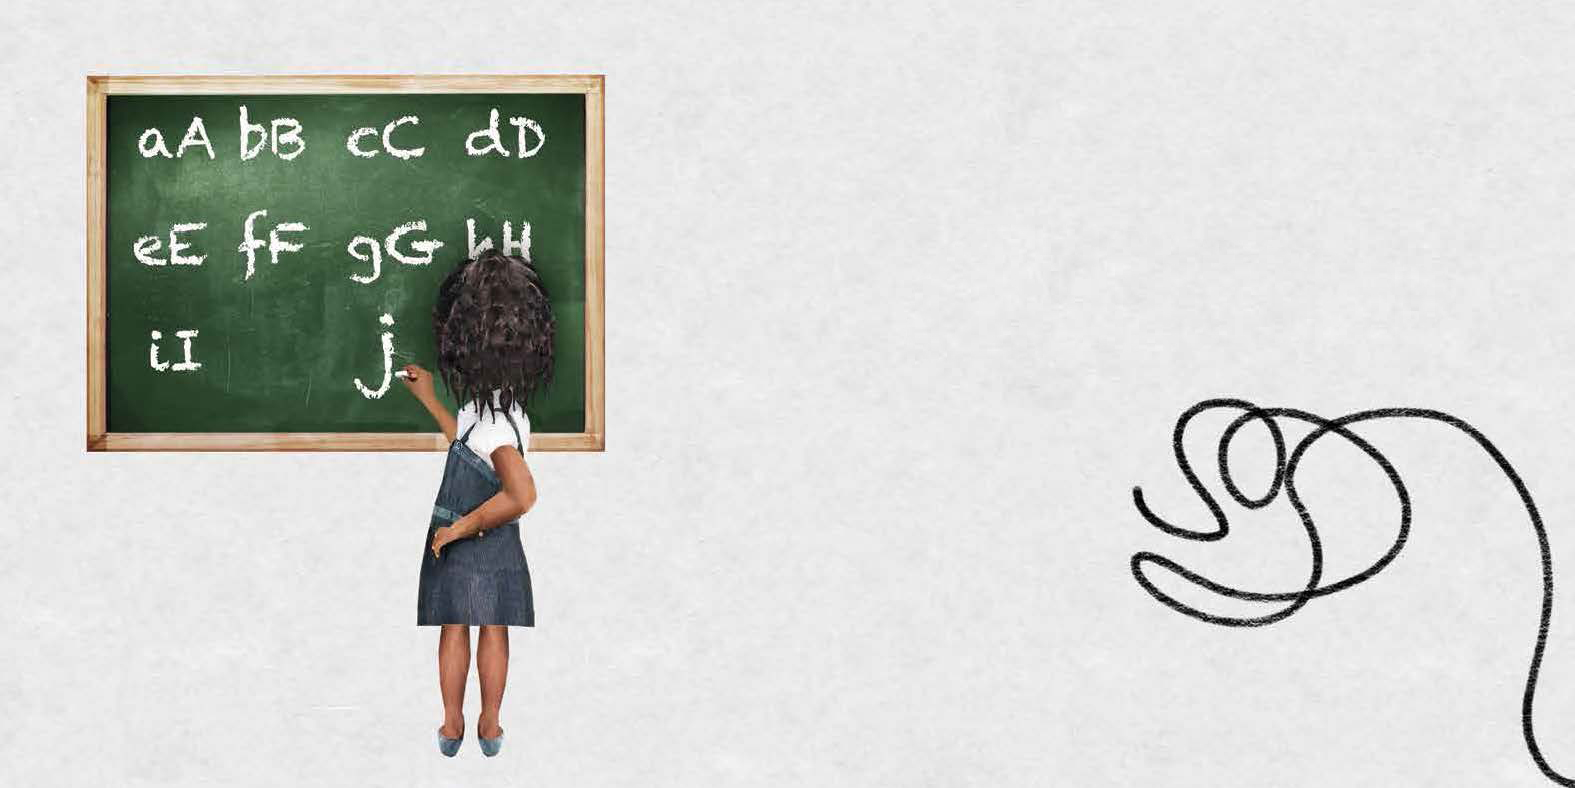 aA bB cC dD
eE fF gG hH
iI j